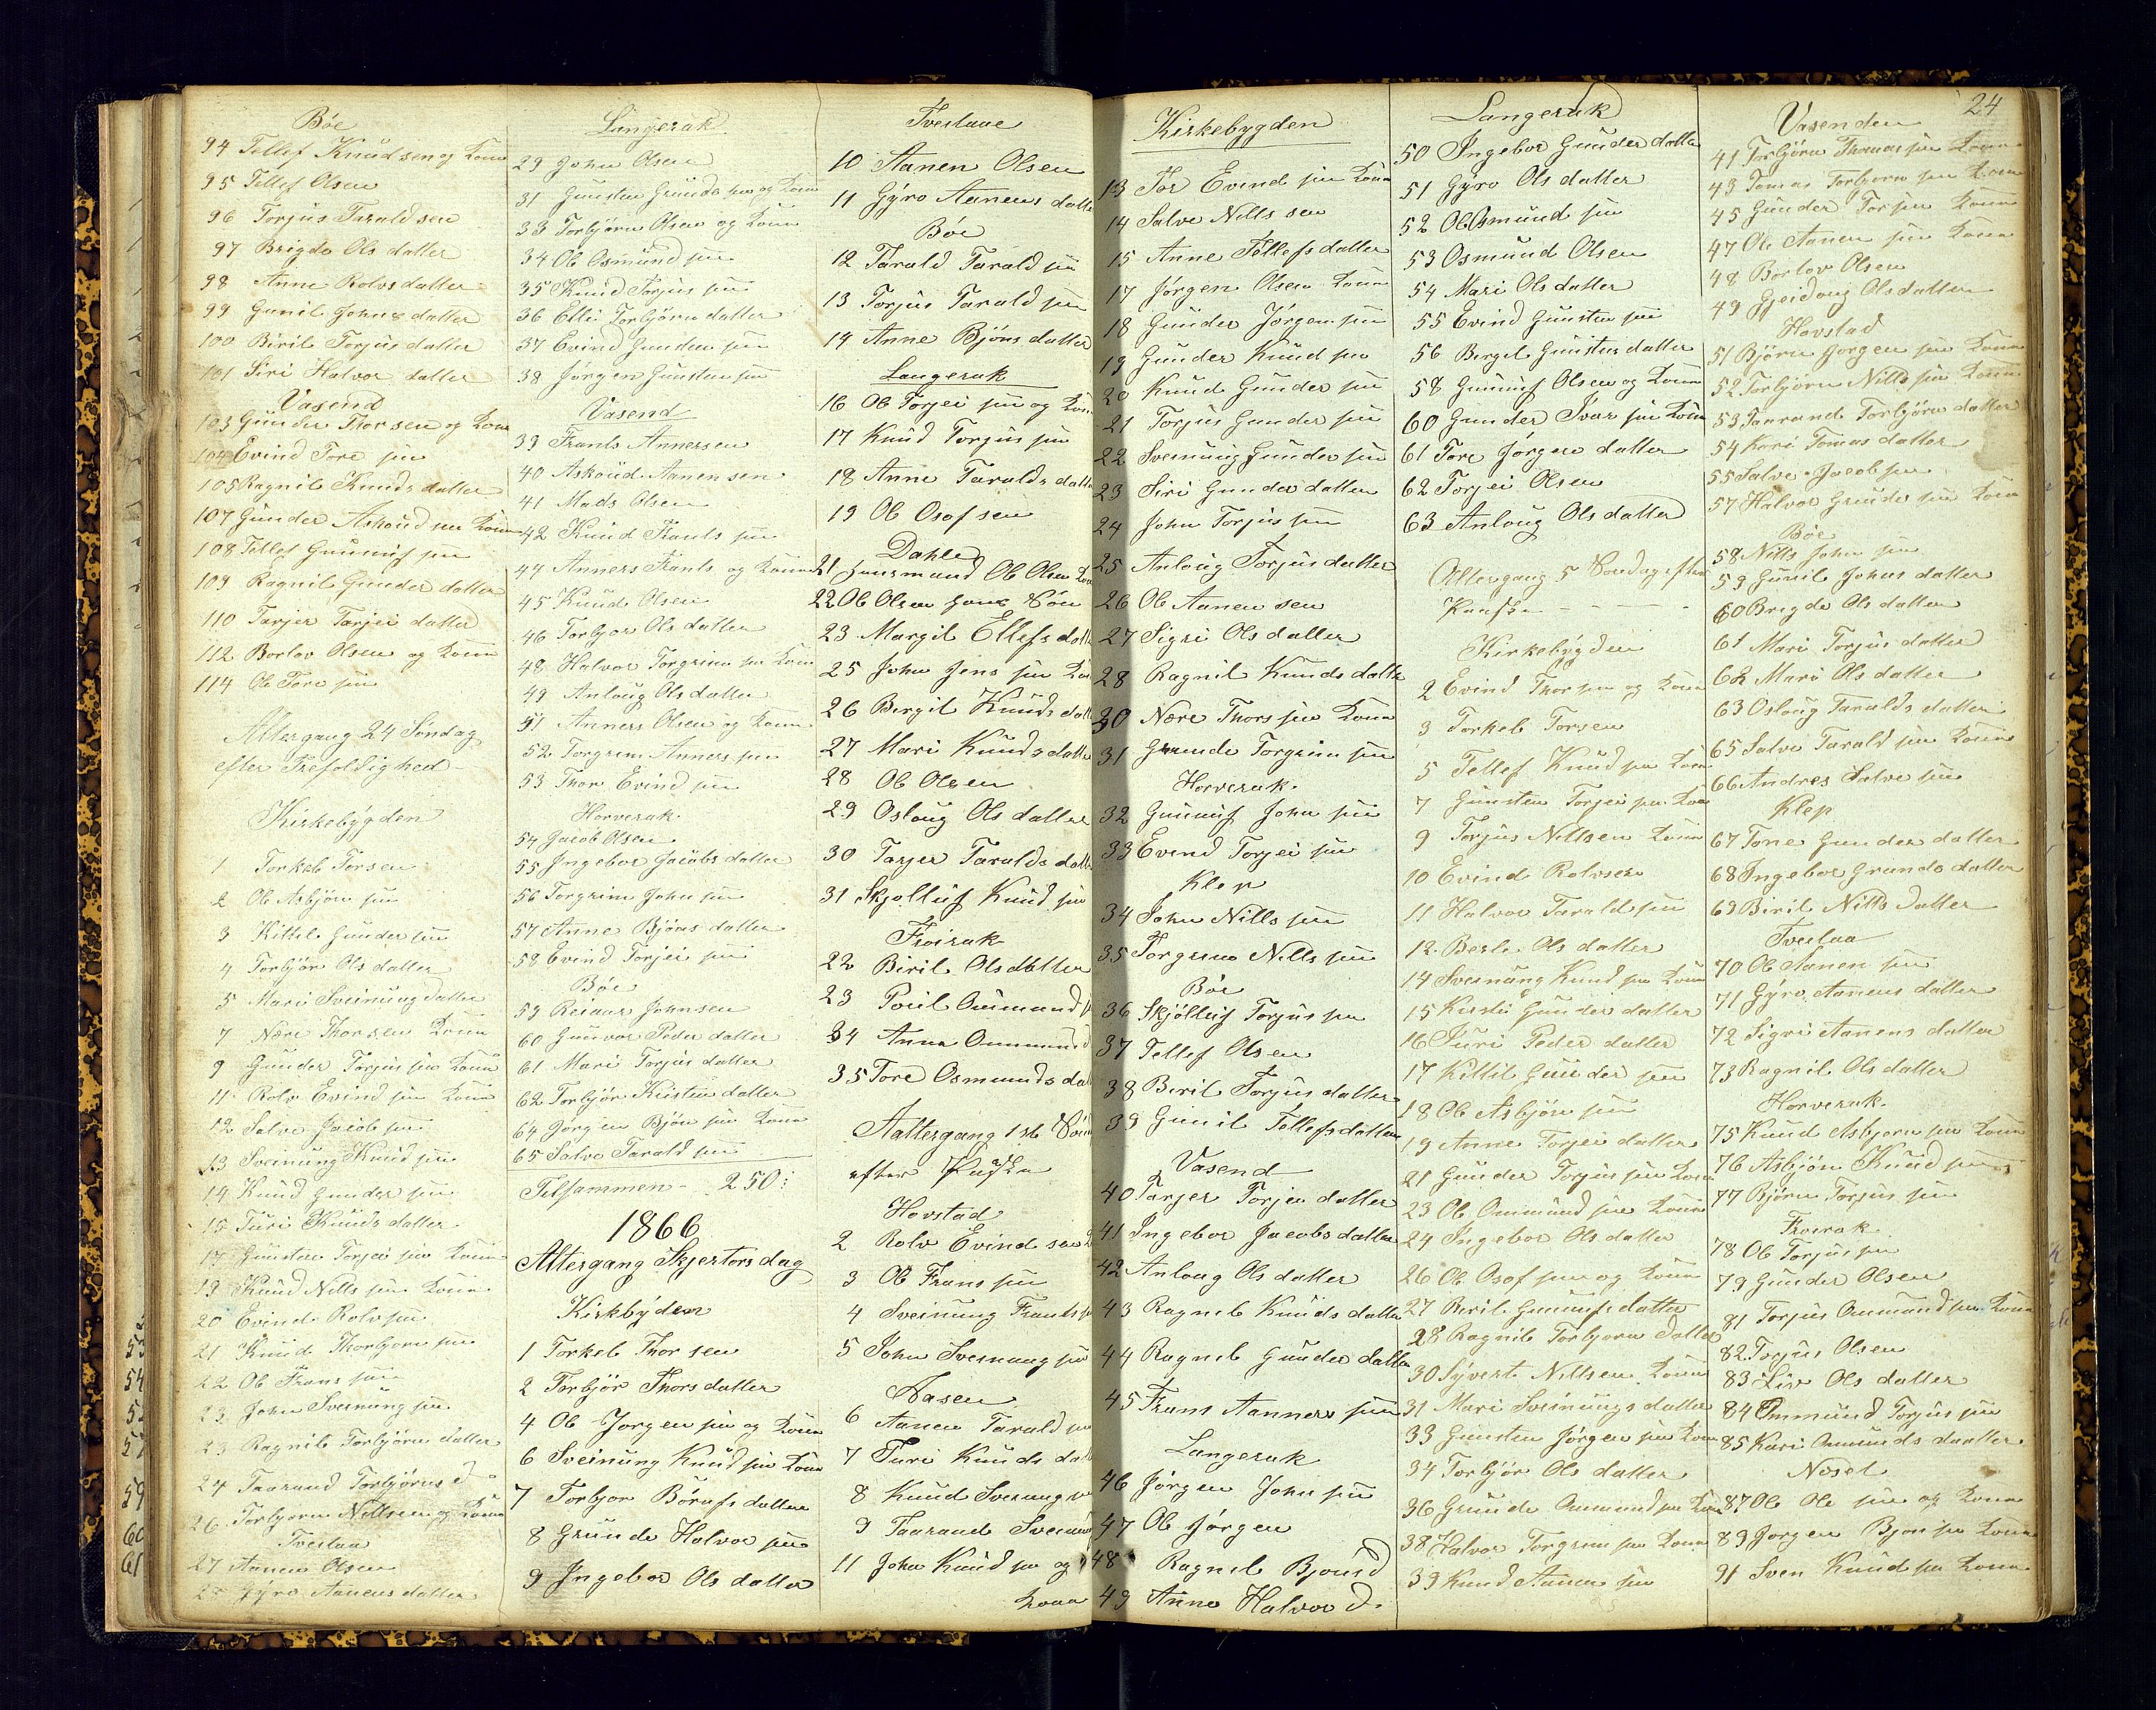 Bøe
94 Tellef Knudsen og Kone
95 Tellef Olsen
96 Torjus Taraldsen
97 Brigde Ols datter
98 Anne Rolvs datter
99 Gunil Johns datter
100 Biril Torjus datter
101 Siri Halvor datter
Vasend
103 Gunder Thorsen og Kone
104 Evind Tore søn
105 Ragnil Knuds datter
107 Gunder Askoud søn Kone
108 Tellef Gunnuf søn
109 Ragnil Gunder datter
110 Tarjer Tarjei datter
112 Borlov Olsen og Kone
114 Ole Tore søn
Altergang 24 Søndag
efter Trefoldighed
Kirkebygden
1 Torkel Torsen
2 Ole Asbjørn søn
3 Kittel Gunder søn
4 Torbjør Ols datter
5 Mari Sveinung datter
7 Nære Thorsen Kone
9 Gunder Torjus søn Kone
11 Rolv Evind søn Kone
12 Salve Jacob søn
13 Sveinung Knud søn
14 Knud Gunder søn
15 Turi Knuds datter
17 Gunsten Torjei søn Kone
19 Knud Nills søn Kone
20 Evind Rolv søn
21 Knud Thorbjorn søn
22 Ole Frans søn
23 John Sveinung søn
23 Ragnil Torbjørn datter
24 Taarand Torbjørns d
26 Torbjorn Nillsen og Kone
Tveitaa
27 Aanen Olsen
28 Gyro Aanens datter
Langerak
29 John Olsen
31 Gunsten Grunde søn og Kone
33 Torbjørn Olsen og Kone
34 Ole Osmund søn
35 Knud Torjus søn
36 Elli Torbjørn datter
37 Evind Gunsten søn
38 Jørgen Gunsten søn
Vasend
39 Frants Annersen
40 Askoud Aanensen
41 Mads Olsen
42 Knud Frants søn
44 Anners Frants og Kone
45 Knud Olsen
46 Torbjor Ols datter
48 Halvor Torgrim søn Kone
49 Anloug Ols datter
51 Anners Olsen og Kone
52 Torgrim Anners søn
53 Thor Evind søn
Horverak
54 Jacob Olsen
55 Ingebor Jacobs datter
56 Torgrim John søn
57 Anne Bjøns datter
58 Evind Torjei søn
Bøe
59 Reiaar Johnsen
60 Gunvor Peder datter
61 Mari Torjus datter
62 Torbjør Kisten datter
64 Jørgen Bjøn søn Kone
65 Salve Tarald søn
Tilsammen - 250:
1866
Altergang Skjertorsdag
Kirkbyden
1 Torkel Thorsen
2 Torbjør Thors datter
4 Ole Jorgen søn og Kone
6 Sveinung Knud søn Kone
7 Torbjor Børufs datter
8 Grunde Halvor søn
9 Ingebor Ols datter
Tveitaae
10 Aanen Olsen
11 Gyro Aanens datter
Bøe
12 Tarald Tarald søn
13 Torjus Tarald søn
14 Anne Bjøns datter
Langerak
16 Ole Torjei søn og Kone
17 Knud Torgus søn
18 Anne Taralds datter
19 Ole Osofsen
Dahle
21 Huusmand Ole Olsen Kone
22 Ole Olsen hans Søn
23 Margit Ellefs datter
25 John Jens søn Kone
26 Bergit Knuds datter
27 Mari Knuds datter
28 Ole Olsen
29 Osloug Ols datter
30 Tarjer Taralds datter
31 Skjolluf Knud søn
Frøirak
22 Biril Ols datter
23 Poul Ommund s
34 Anna Ommund
35 Tore Osmunds da
Aaltergang 1ste Søn
efter Paaske
Hovstad
2 Rolv Evind søn
3 Ole Frans søn
4 Sveinung Frants s
5 John Sveinung søn
Aasen
6 Aanen Tarald søn
7 Turi Knuds datter
8 Knud Sveinung s
9 Taarand Sveinung
11 John Knud søn og
Kone
24
Kirkebygden
13 Tor Evind søn Kone
14 Salve Nills sen
15 Anne Tellefs datter
17 Jørgen Olsen Kone
18 Gunder Jørgen søn
19 Gunder Knud søn
20 Knud Gunder søn
21 Torjus Gunder søn
22 Sveinung Gunder søn
23 Siri Gunder datter
24 John Torjus søn
25 Anloug Torjus datter
26 Ole Aanen sen
27 Sigri Ols datter
28 Ragnil Knuds datter
30 Nære Thors søn Kone
31 Grunde Torgrim søn
Horverak
32 Gunnuf John søn
33 Evend Torjei søn
Klep
34 John Nills søn
35 Torgrim Nills søn
Bøe
36 Skjølluf Torjus søn
37 Tellef Olsen
38 Beril Torjus datter
39 Gunil Tellefs datter
Vasend
40 Tarjer Torjei datter
41 Ingebor Jacobs datter
42 Anloug Ols datter
43 Ragnil Knuds datter
44 Ragnil Gunder datter
45 Frans Aanners søn
Langerak
46 Jørgen John søn
47 Ole Jørgen
48 Ragnil Bjons d
49 Anne Halvor d.
Langerak
50 Ingebor Gunder datter
51 Gyro Ols datter
52 Ole Osmund søn
53 Osmund Olsen
54 Mari Ols datter
55 Evind Gunsten søn
56 Bergit Gunstens datter
58 Gunnuf Olsen og Kone
60 Gunder Ivar søn Kone
61 Tore Jørgen datter
62 Torjei Olsen
63 Anloug Ols datter
Altergang 5 Søndag efter
Paaske
Kirkebygden
2 Evind Thor søn og Kone
3 Torkel Torsen
5 Tellef Knud søn Kone
7 Gunsten Torjei søn Kone
9 Torjus Nillsen Kone
10 Evind Rolvsen
11 Halvor Tarald søn
12. Berle Ols datter
14 Sveinung Knud søn Kone
15 Kisti Gunder datter
16 Turi Peder datter
17 Kittil Gunder søn
18 Ole Asbjøn søn
19 Anne Torjei datter
21 Gunder Torjus søn Kone
23 Ole Ommund søn Kone
24 Ingebor Ols datter
26 Ole Osof søn og Kone
27 Beril Gunnufs datter
28 Ragnil Torbjorn datter
30 Syvert Nillsen Kone
31 Mari Sveinungs datter
33 Gunsten Jørgen søn Kone
34 Torbjør Ols datter
36 Grunde Ommund søn Kone
38 Halvor Torgrim søn Kone
39 Knud Aanen søn
Vasenden
41 Torbjørn Thomas søn Kone
43 Tomas Torbjorn søn Kone
45 Gunder Tor søn Kone
47 Ole Aanen søn Kone
48 Borlov Olsen
49 Gjeidoug Ols datter
Hovstad
51 Bjørn Jorgen søn Kone
52 Torbjørn Nills søn Kone
53 Taarand Torbjørn datter
54 Kari Tomas datter
55 Salve Jacob søn
57 Halvor Grunde søn Kone
Bøe
58 Nills John søn
59 Gunil Johns datter
60 Brigde Ols datter
61 Mari Torjus datter
62 Mari Ols datter
63 Osloug Taralds datter
65 Salve Tarald søn Kone
66 Andres Salve søn
Klep
67 Tone Gunder datter
68 Ingebor Grunde datter
69 Biril Nills datter
Tveitaa
70 Ole Aanen søn
71 Gyro Aanens datter
72 Sigri Aanens datter
73 Ragnil Ols datter
Horverak
75 Knud Asbjorn søn Kone
76 Asbjørn Knud søn
77 Bjørn Torjus søn
Frøirak
78 Ole Torjus søn
79 Gunder Olsen
81 Torjus Ommund søn Kone
82 Torjus Olsen
83 Liv Ols datter
84 Ommund Torjus søn
85 Kari Ommunds daatter
Nosel
87 Ole Ole søn og Kone
89 Jorgen Bjon søn Kone
91 Sven Knud søn Kone